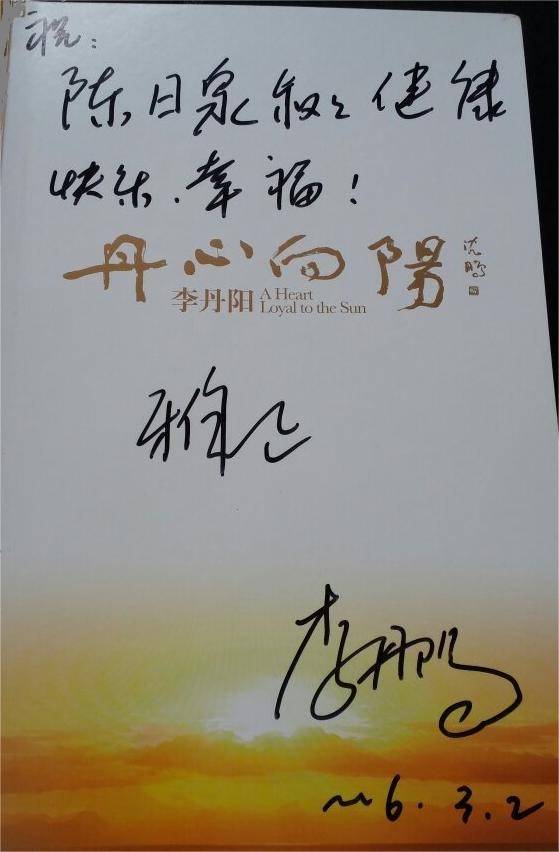 祝：
陈日泉叔叔健康
快乐、幸福！
丹心向陽
沈鹏
李丹阳 A Heart
Loyal to the Sun
雅正
李丹阳
2016.3.2